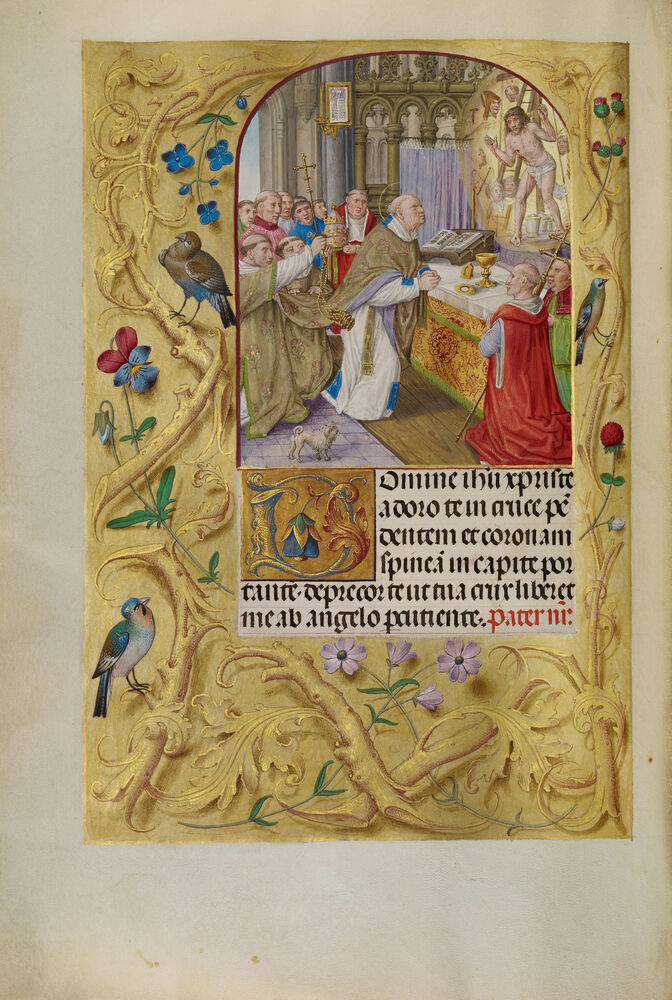 Domine ihũ xpriste
adoro te in cruce pẽ
dentem et coronam
spineã in capite por
tantẽ. deprecor te ut tua crux liberet
me ab angelo pcutiente. Pater nr̃: